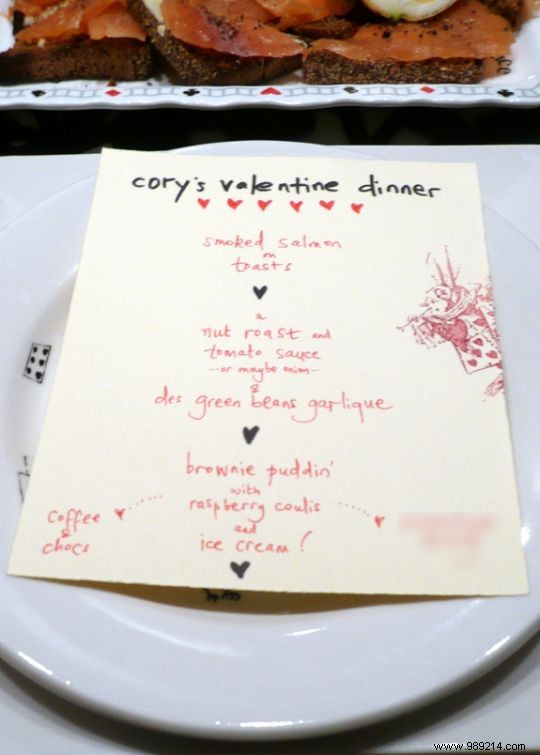 cory's valentine dinner
smoked salmon
on
toasts
a
nut roast and
tomato sauce
--or maybe onion--
&
des green beans garlique
brownie puddin'
with
raspberry coulis
and
ice cream!
coffee
&
chocs
www.989214.com